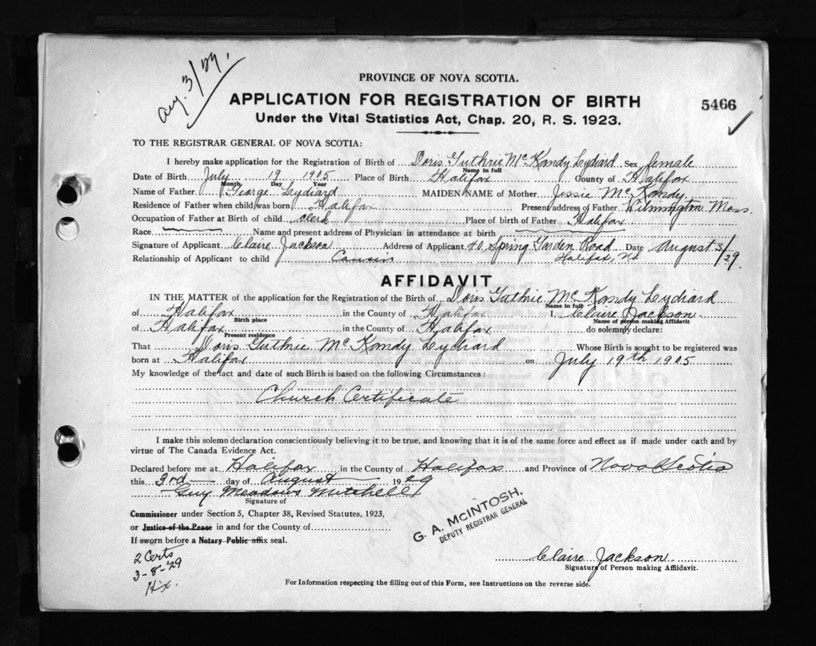 Aug. 3/29.
PROVINCE OF NOVA SCOTIA.
APPLICATION FOR REGISTRATION OF BIRTH
5466
Under the Vital Statistics Act, Chap. 20, R. S. 1923.
TO THE REGISTRAR GENERAL OF NOVA SCOTIA:
I hereby make application for the Registration of Birth of Doris Guthrie McKandy Lydiard Sex female
Name in full
Date of Birth July 19 1905 Place of Birth Halifax County of Halifax
Month Day Year
Name of Father George Lydiard MAIDEN NAME of Mother Jessie McKandy
Residence of Father when child was born Halifax Present address of Father Wilmington Mass.
Occupation of Father at Birth of child clerk Place of birth of Father Halifax
Race Name and present address of Physician in attendance at birth
Signature of Applicant Claire Jackson Address of Applicant 40 Spring Garden Road Date August 3/29.
Relationship of Applicant to child Cousin Halifax, NS
AFFIDAVIT
IN THE MATTER of the application for the Registration of the Birth of Doris Guthrie McKandy Lydiard
Name in full
of Halifax in the County of Halifax I, Claire Jackson
Birth place Name of person making Affidavit
of Halifax in the County of Halifax do solemnly declare:
Present residence
That Doris Guthrie McKandy Lydiard Whose Birth is sought to be registered was
born at Halifax on July 19th 1905
My knowledge of the fact and date of such Birth is based on the following Circumstances:
Church Certificate
I make this solemn declaration conscientiously believing it to be true, and knowing that it is of the same force and effect as if made under oath and by
virtue of The Canada Evidence Act.
Declared before me at Halifax in the County of Halifax and Province of Nova Scotia
this 3rd day of August 1929
Guy Meadows Mitchell
Signature of
Commissioner under Section 5, Chapter 38, Revised Statutes, 1923,
or Justice of the Peace in and for the County of
If sworn before a Notary Public affix seal.
G. A. McINTOSH,
DEPUTY REGISTRAR GENERAL
2 Certs
3-8-29
Hx.
Claire Jackson
Signature of Person making Affidavit.
For Information respecting the filling out of this Form, see Instructions on the reverse side.